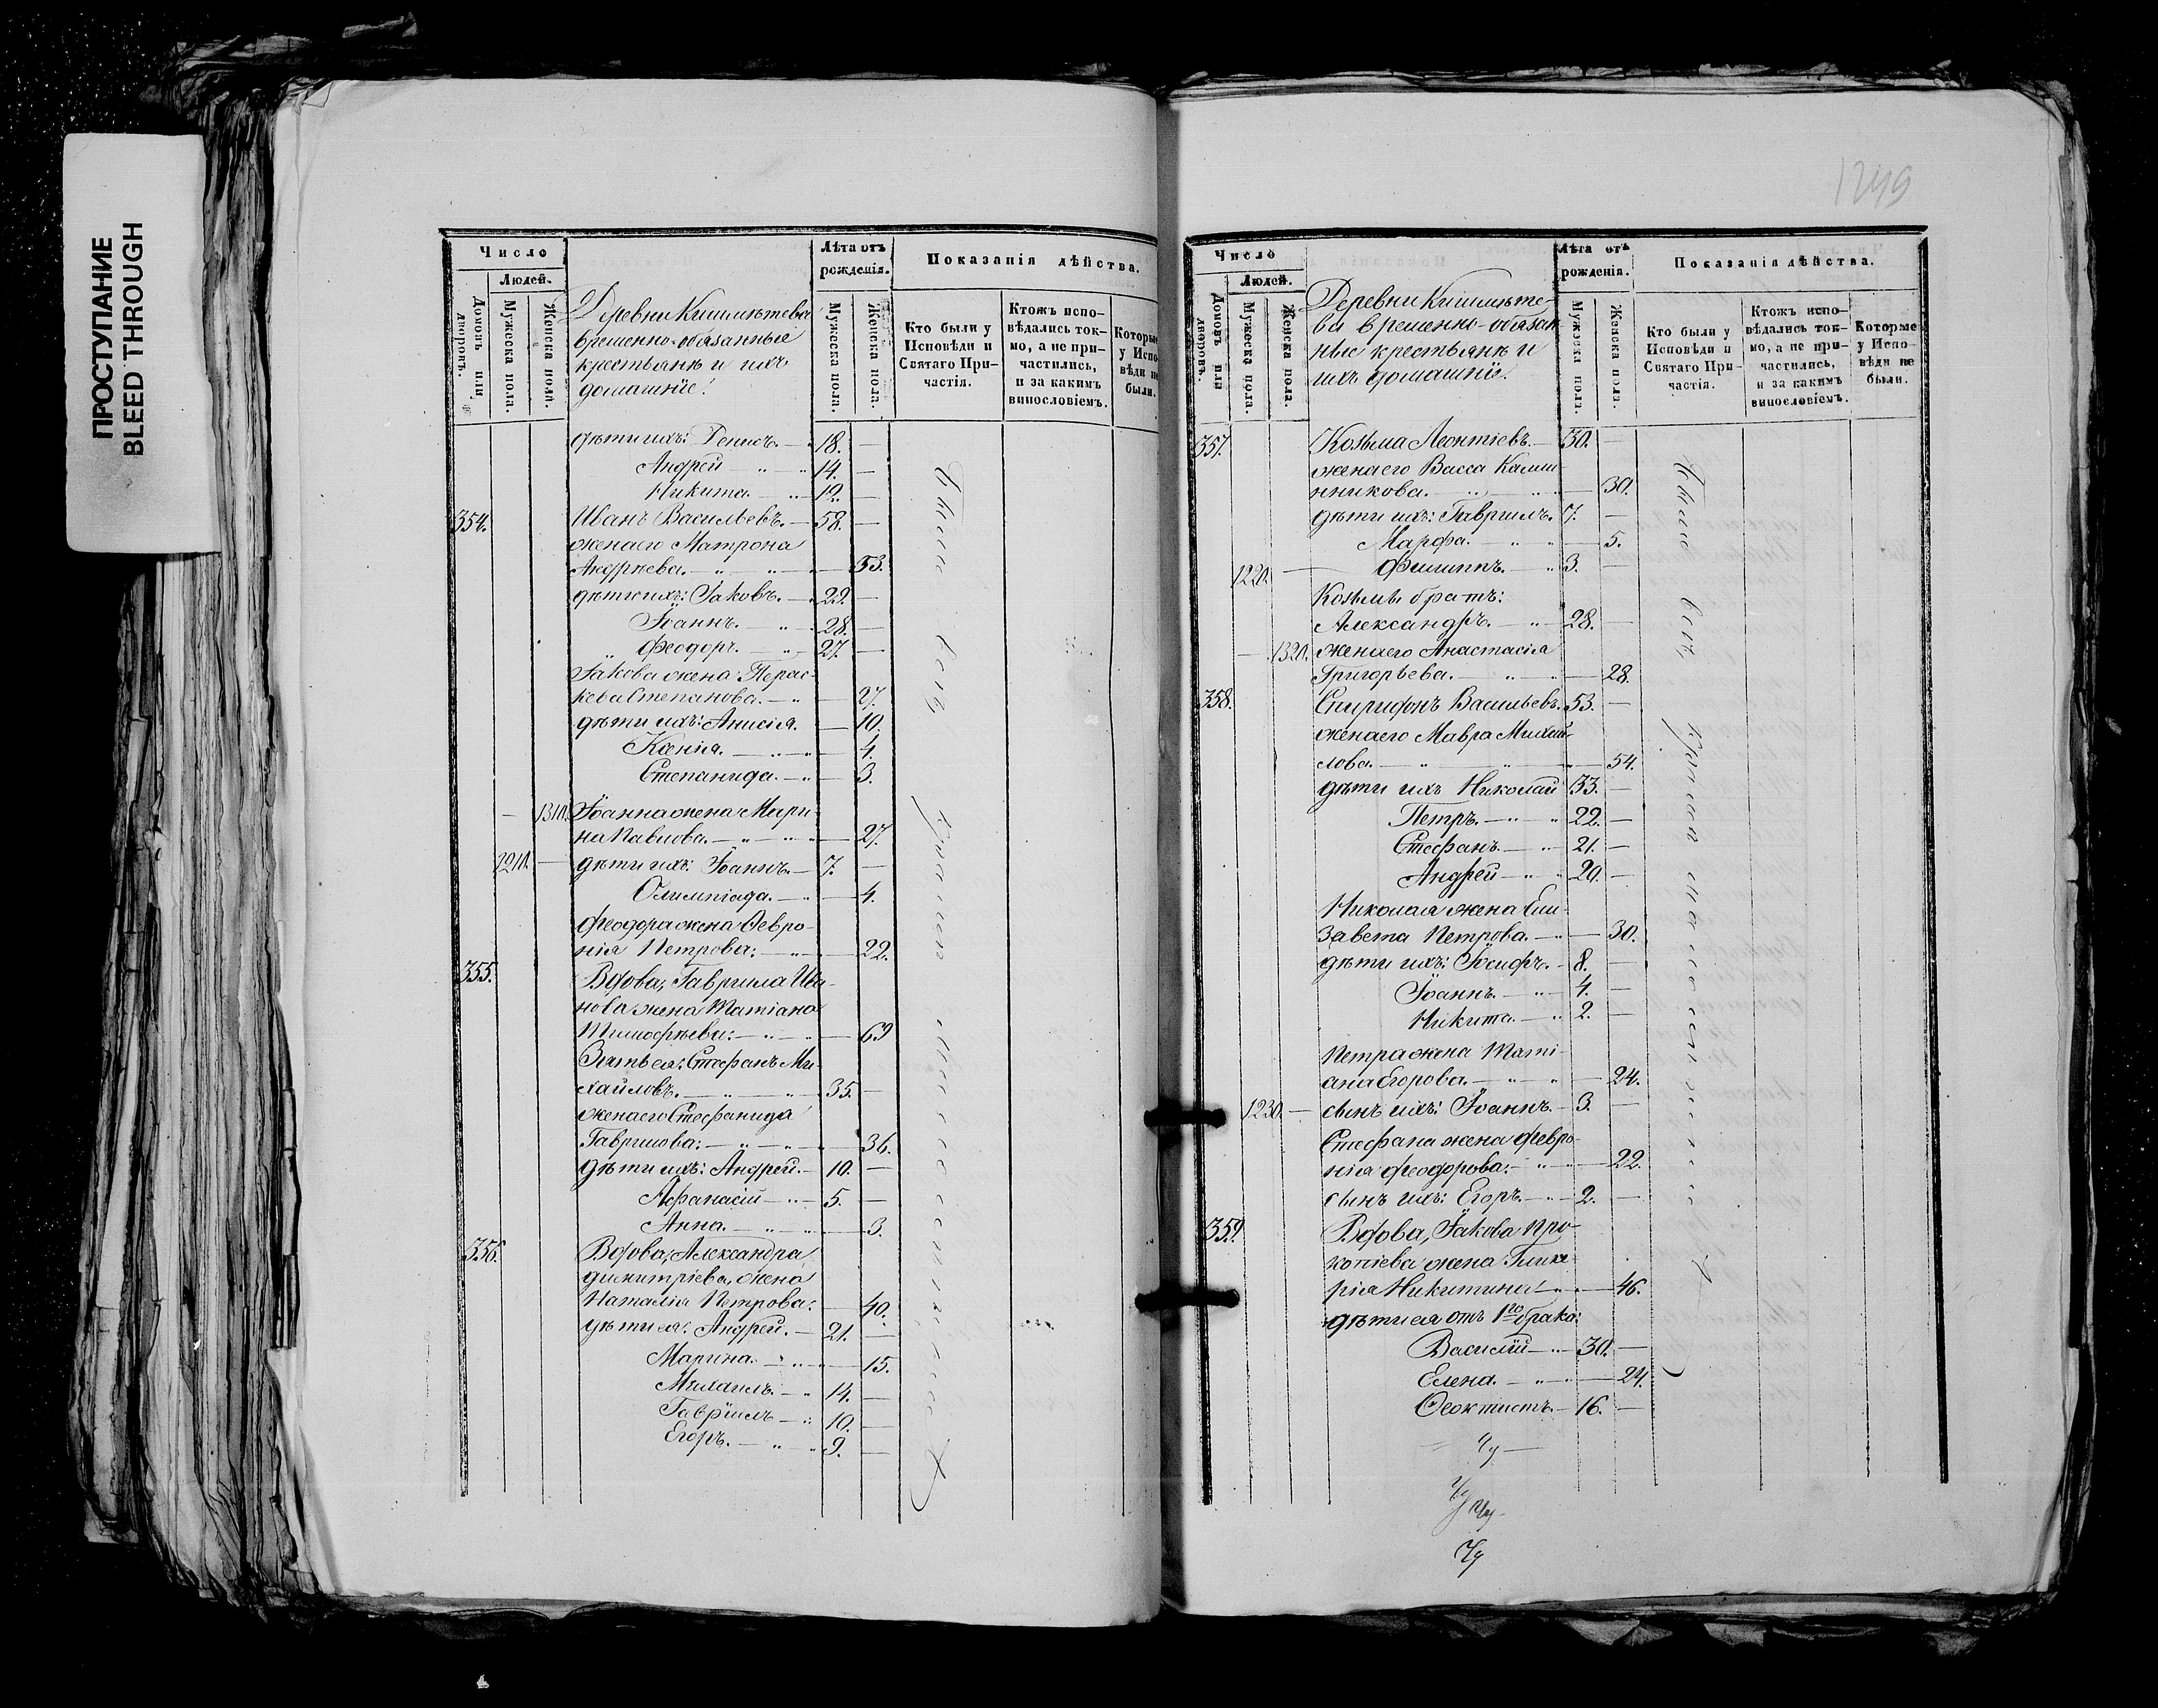 ПРОСТУПАНИЕ
BLEED THROUGH
Число
Людей.
Домовъ или дворовъ.
Мужеска пола.
Женска пола.
Деревни
временно-обязанные
крестьянѣ и ихъ
домашніе:
Лѣта отъ
рожденія.
Мужеска пола.
Женска пола.
Показанія дѣйства.
Кто были у
Исповѣди и
Святаго При-
частія.
Ктожъ испо-
вѣдались ток-
мо, а не при-
частились,
и за какимъ
винословіемъ.
Которые
у Испо-
вѣди не
были.
дѣти ихъ: — 18. —
Андрей — „ — „ 14. —
Никита. — „ 12. —
354. Иванъ Васильевъ. — 58. —
жена его Матрона
Андреева. — „ — „ — 53.
дѣти ихъ: Іаковъ. — 29. —
Іоаннъ. — „ — 28. —
Феодоръ. — „ — 27. —
Іакова жена Парас-
кева Степанова. — „ — 27.
дѣти ихъ: Анисія. — 10.
Ксенія. — „ — 4.
Степанида. — „ — 3.
— 1310. Іоанна жена Мари-
на Павлова. — „ — „ — 27.
1210. — дѣти ихъ: Іоаннъ. — 7. —
Олимпіада. — „ — 4.
Феодора жена Февро-
нія Петрова: — „ — 22.
355. Вдова, Гавриила Ива-
нова жена Татіана
Тимофѣева: — „ — „ — 63
Зять ея: Стефанъ Ми-
хайловъ. — „ — „ — 35. —
жена его Стефанида
Гаврилова: — „ — „ — 36.
дѣти ихъ: Андрей. — 10. —
Афанасій — „ — 5. —
Анна. — „ — „ — 3.
356. Вдова, Александра
Димитріева, жена
Наталія Петрова: — 40.
дѣти ея: Андрей. — 21. —
Марина. — „ — 15.
Михаилъ. — „ 14. —
Гавріилъ — „ 10. —
Егоръ. — „ — „ 9. —
Были у
1249
Число
Людей.
Домовъ или дворовъ.
Мужеска пола.
Женска пола.
Деревни
временно-обязан
ные крестьянѣ и
ихъ домашніе.
Лѣта отъ
рожденія.
Мужеска пола.
Женска пола.
Показанія дѣйства.
Кто были у
Исповѣди и
Святаго При-
частія.
Ктожъ испо-
вѣдались ток-
мо, а не при-
частились,
и за какимъ
винословіемъ.
Которые
у Испо-
вѣди не
были.
357. Козьма Леонтіевъ. — 30. —
жена его Васса
„ — „ — 30.
дѣти ихъ: Гавриилъ. 7. —
Марфа. — „ — „ — 5.
1220. — Филиппъ. — „ 3. —
Козьмы братъ:
Александръ. — „ — 28. —
— 1320. жена его Анастасія
Григорьева. — „ — „ — 28.
358. Спиридонъ Васильевъ. 53. —
жена его Мавра Михай-
лова. — „ — „ — „ — 54.
дѣти ихъ Николай 33. —
Петръ. — „ — „ 22. —
Стефанъ. — „ — 21. —
Андрей — „ — „ 20. —
Николая жена Ели-
завета Петрова. — „ — 30.
дѣти ихъ: Іосифъ. — 8. —
Іоаннъ. — „ — 4. —
Никита. — „ 2. —
Петра жена Тати-
ана Егорова. — „ — „ — 24.
1230. — сынъ ихъ: Іоаннъ. — 3. —
Стефана жена Февро-
нія Феодорова: — „ — 22.
сынъ ихъ: Егоръ. — „ — 2. —
359. Вдова, Іакова Про-
копіева жена Глике-
рія Никитина: — „ — 46.
дѣти ея отъ 1го брака:
Василій — „ — 30. —
Елена. — „ — „ — 24.
Феоктистъ. — 16. —